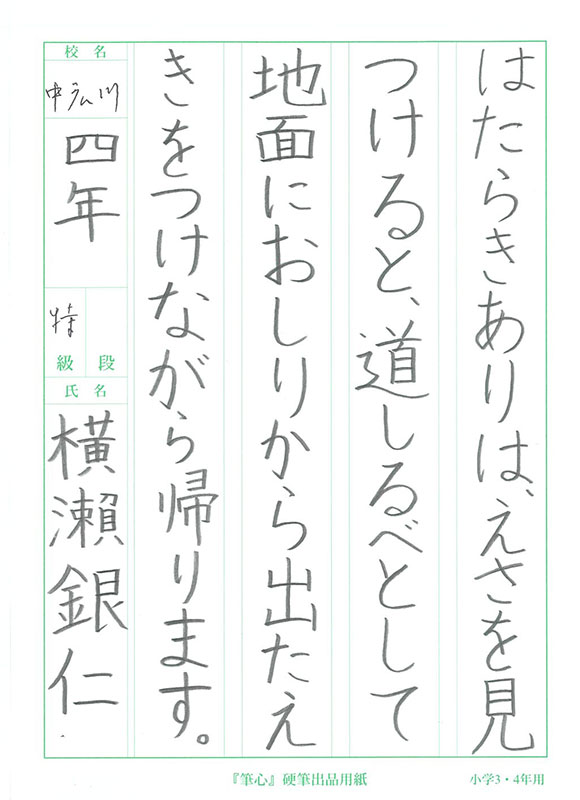 はたらきありは、えさを見
つけると、道しるべとして
地面におしりから出たえ
きをつけながら帰ります。
校名
中広川
四年
特
級 段
氏名
横瀬銀仁
『筆心』硬筆出品用紙
小学3・4年用